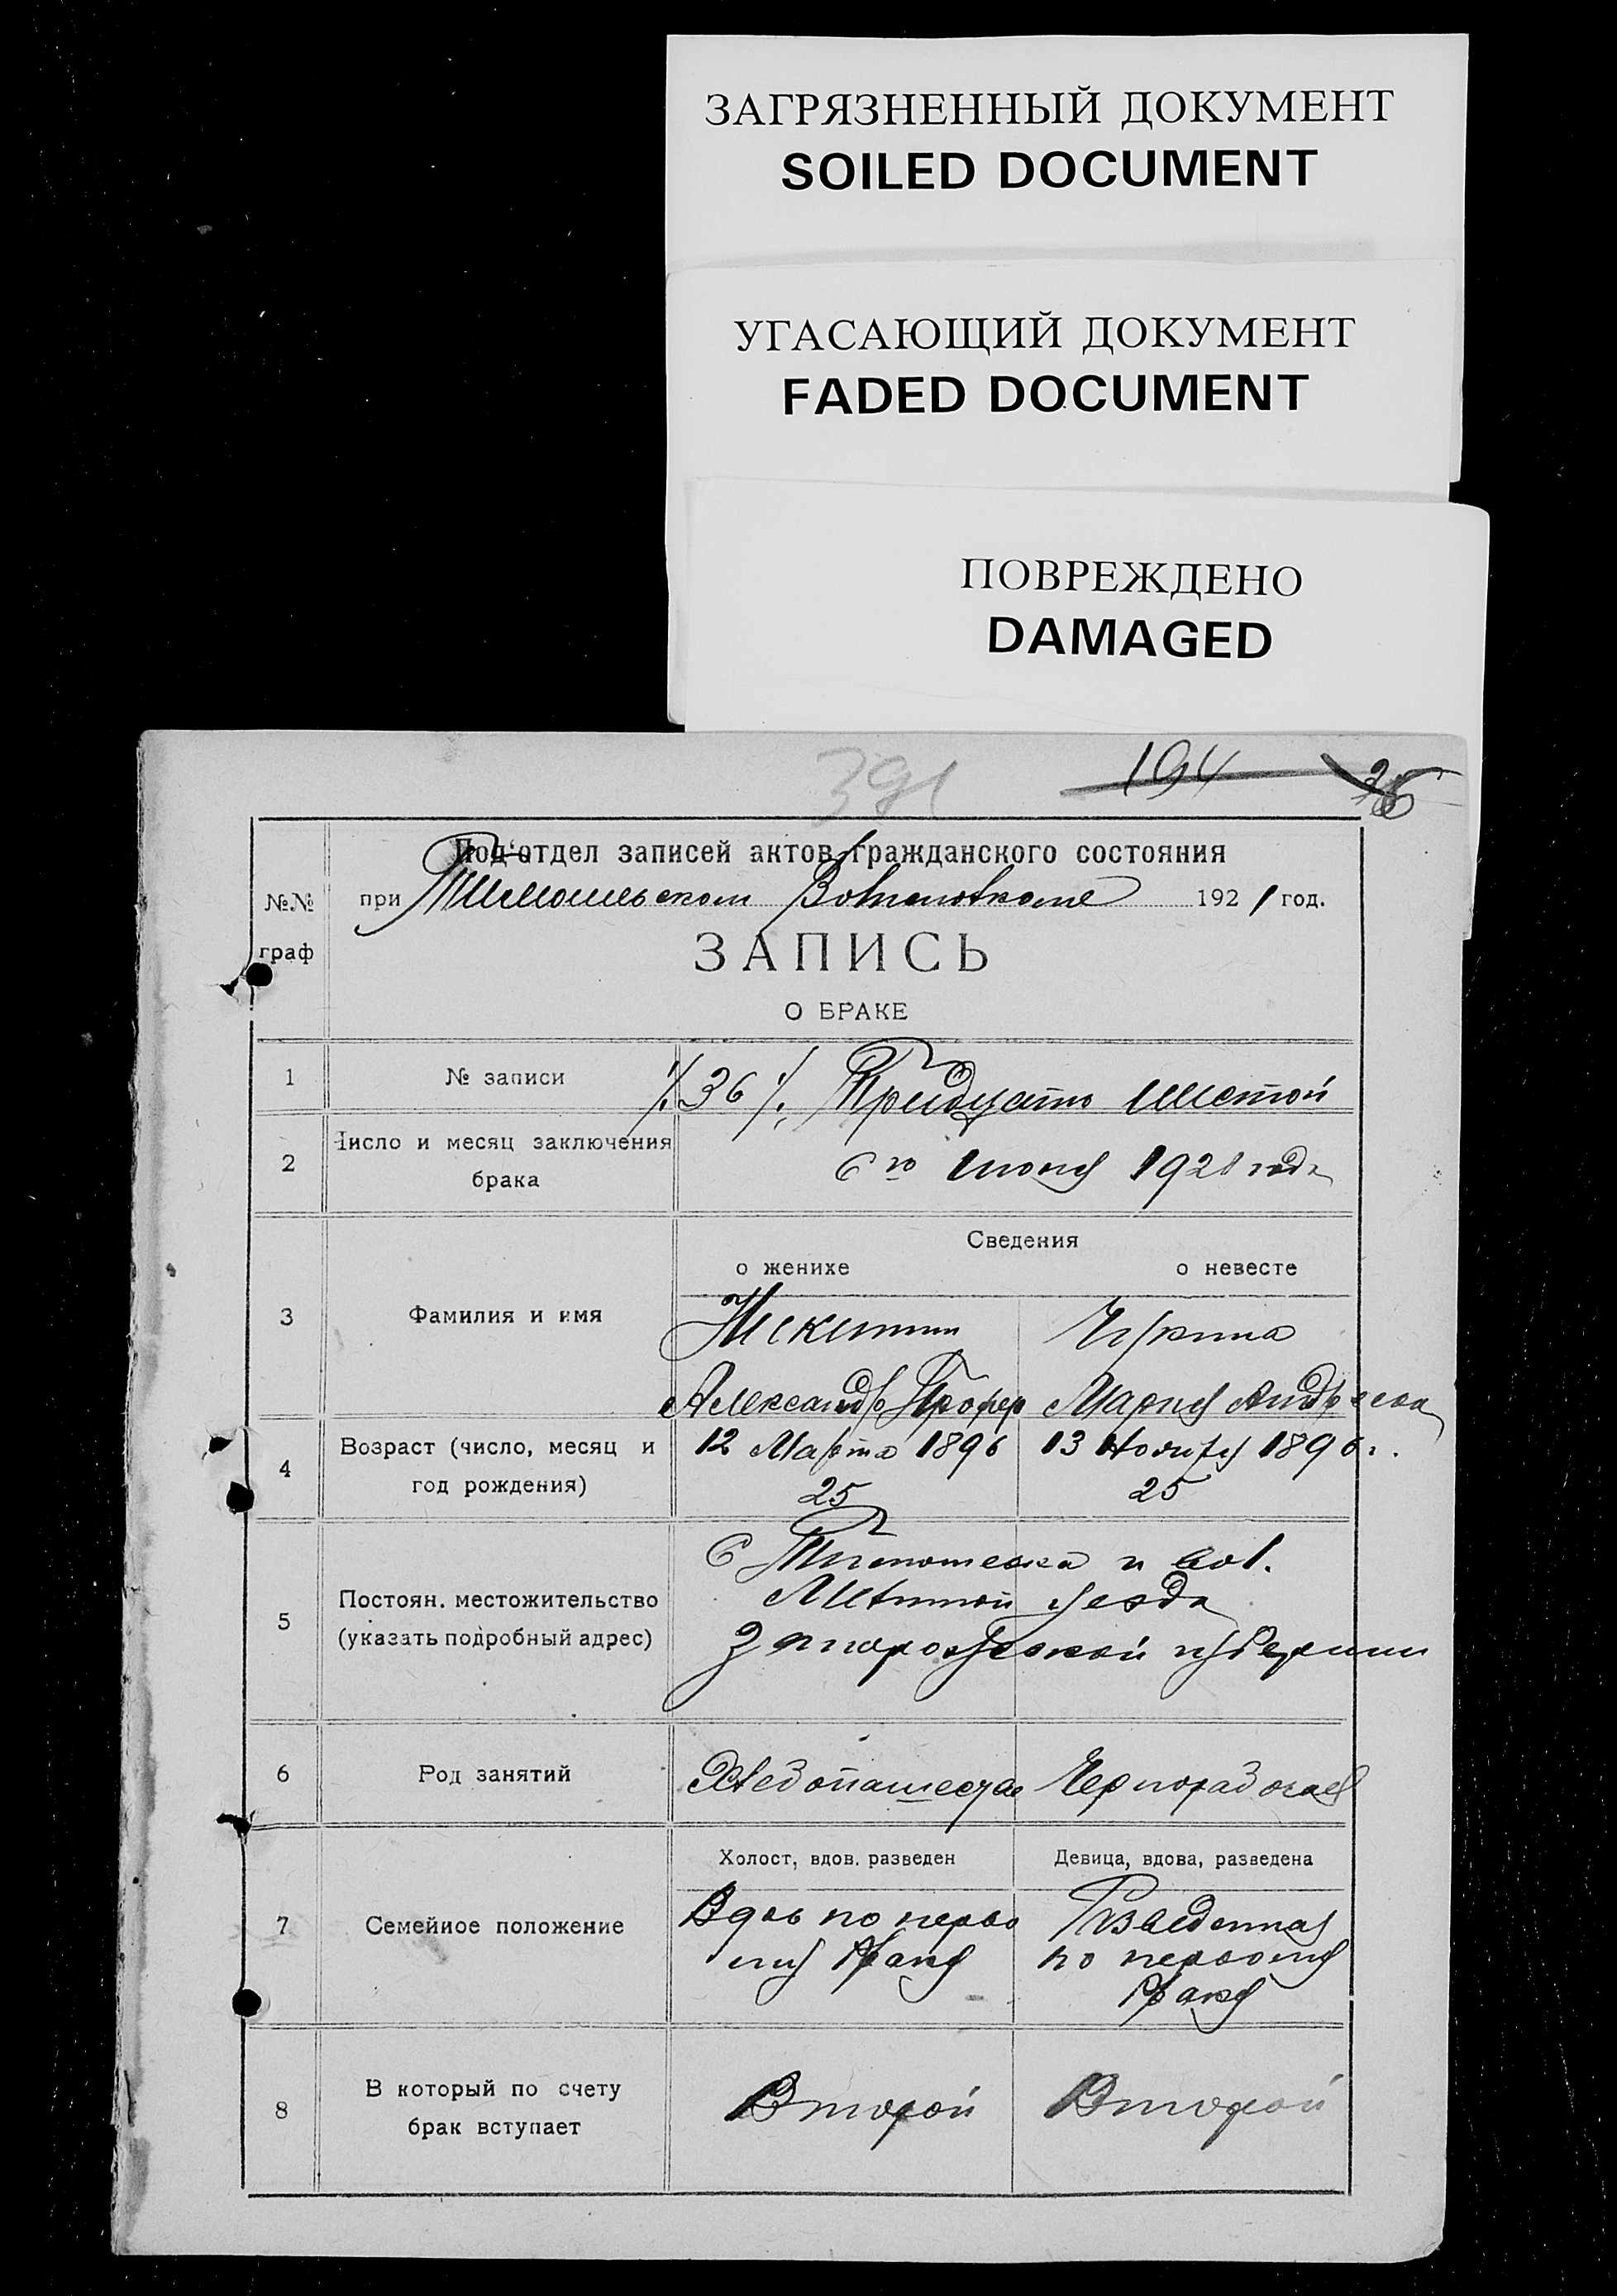 ЗАГРЯЗНЕННЫЙ ДОКУМЕНТ
SOILED DOCUMENT
УГАСАЮЩИЙ ДОКУМЕНТ
FADED DOCUMENT
ПОВРЕЖДЕНО
DAMAGED
391 194
Под'отдел записей актов гражданского состояния
№№ граф
при Тимошевском 1921 год.
ЗАПИСЬ
О БРАКЕ
1 № записи 36 Тридцать шестой
2 Число и месяц заключения
брака
6го Июня 1921 года
Сведения
о женихе о невесте
3 Фамилия и имя
Никитин
Александр Профер Мария
4 Возраст (число, месяц и
год рождения)
12 Марта 1896 13 1896 г.
25 25
5 Постоян. местожительство
(указать подробный адрес)
С Тимошевка
уезда
Запорожской губернии
6 Род занятий
Хлебопашество Чернорабочая
Холост, вдов, разведен Девица, вдова, разведена
7 Семейное положение
Вдов по перво
му браку
Разведенная
по первому
браку
8 В который по счету
брак вступает
Второй Второй